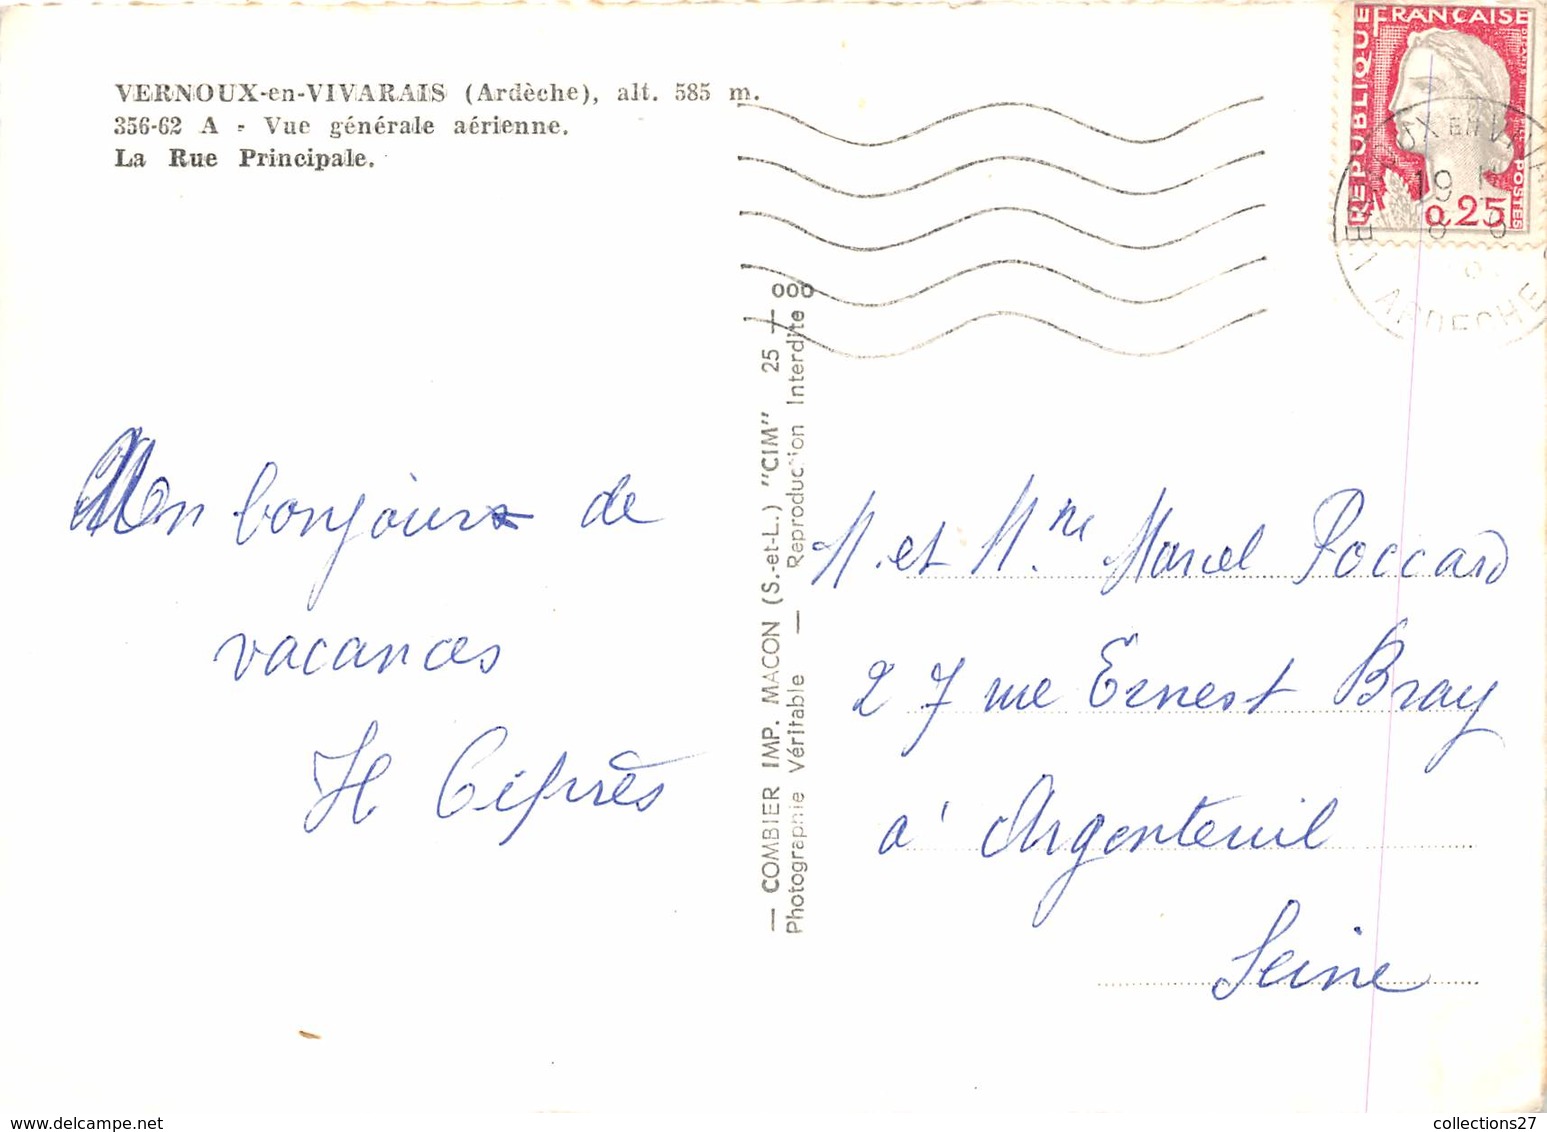 VERNOUX-en-VIVARAIS (Ardèche), alt. 585 m.
356-62 A - Vue générale aérienne.
La Rue Principale.
Mon bonjour de
vacances
H Ciprès
— COMBIER IMP. MACON (S.-et-L.) "CIM" 25 — 000
Photographie Véritable — Reproduction Interdite
REPUBLIQUE FRANÇAISE
POSTES
0,25
19
ARDECHE
M. et Mme Marcel Poccard
27 rue Ernest Bray
à Argenteuil
Seine
collections27